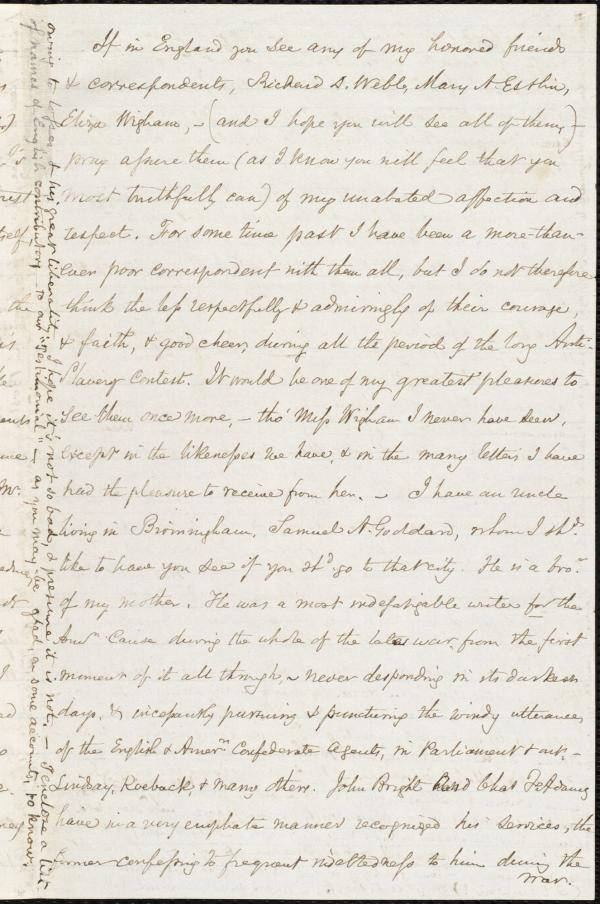 If in England you see any of my honored friends
& correspondents, Richard D. Webb, Mary A Estlin,
Eliza Wigham, – (and I hope you will see all of them,) –
pray assure them (as I know you will feel that you
most truthfully can) of my unabated affection and
respect. For some time past I have been a more-than-
ever poor correspondent with them all, but I do not therefore
think the less respectfully & admiringly of their courage,
& faith, & good cheer, during all the period of the long Anti-
Slavery Contest. It would be one of my greatest pleasures to
see them once more, – tho' Miss Wigham I never have seen,
except in the likenesses we have, & in the many letters I have
had the pleasure to receive from her. – I have an uncle
living in Birmingham, Samuel A. Goddard, whom I shd.
like to have you see if you shd. go to that city. He is a bror.
of my mother. He was a most indefatigable writer for the
Amn. Cause during the whole of the late war, from the first
moment of it all through, – never desponding in its darkest
days, & incessantly pursuing & puncturing the windy utterances
of the English & Amern. Confederate Agents, in Parliament & out, –
Lindsay, Roebuck, & many others. John Bright and Chas F. Adams
have in a very emphatic manner recognized his services, the
former confessing to frequent indebtedness to him during the
war.
owing to & his great liberality, I hope it is not so bad & presume it is not. – I enclose a list
of names of English contributors to our "testimonial" – as you may be glad, on some accounts, to know.